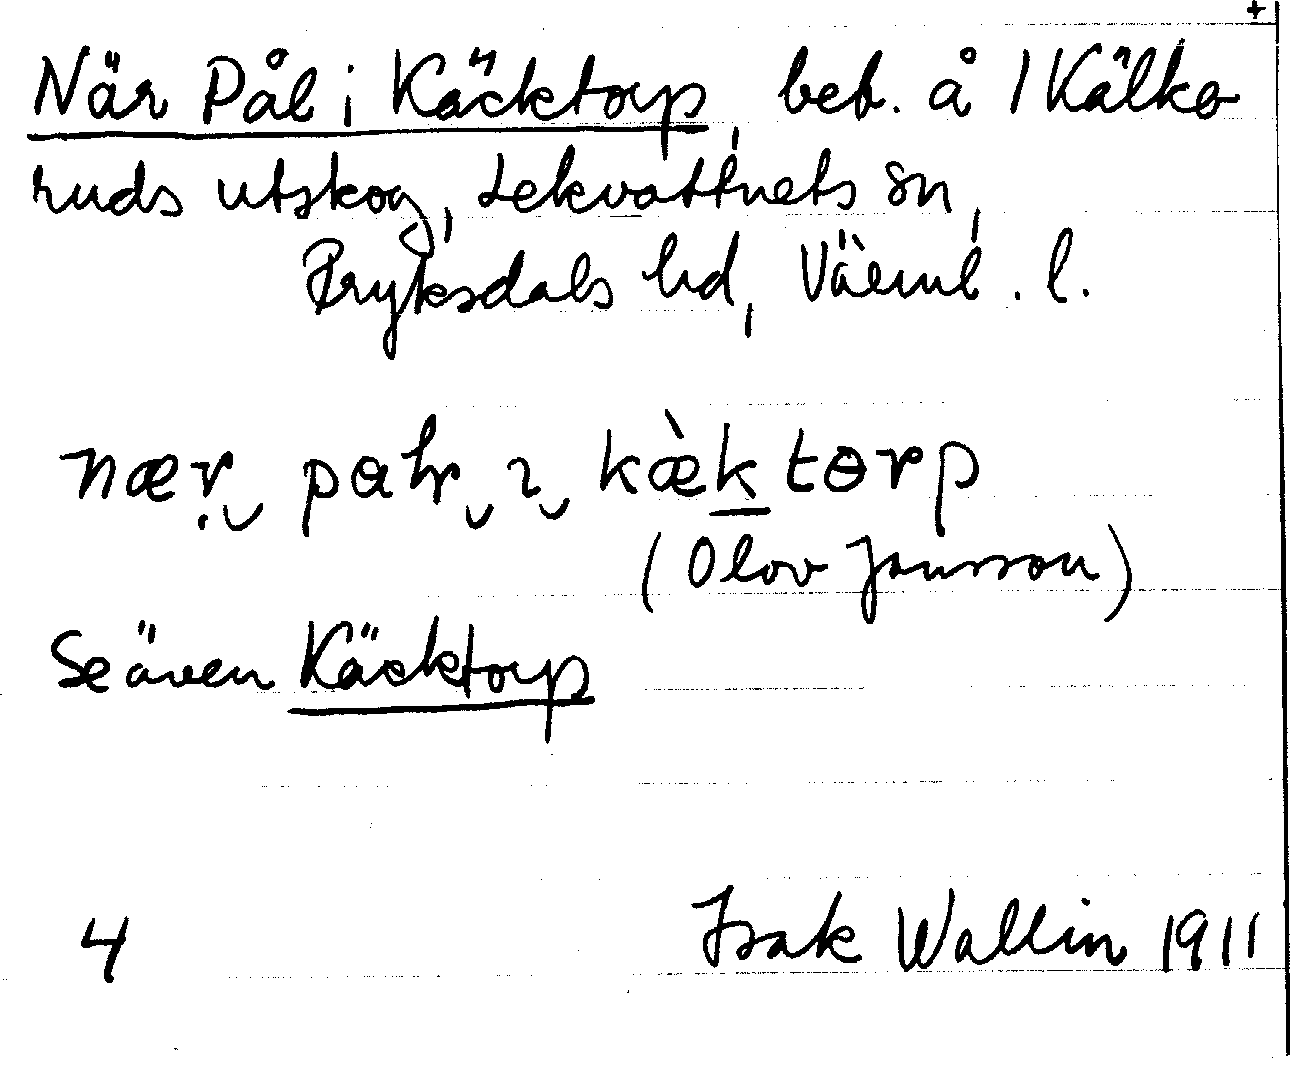 +
När Pål i Käcktorp, beb. å 1 Kälke
ruds utskog, Lekvattnets sn,
Fryksdals hd, Värml. l.
nær pahr ı kæ̀k torp
(Olov Jonsson)
Se även Käcktorp
4 Isak Wallin 1911